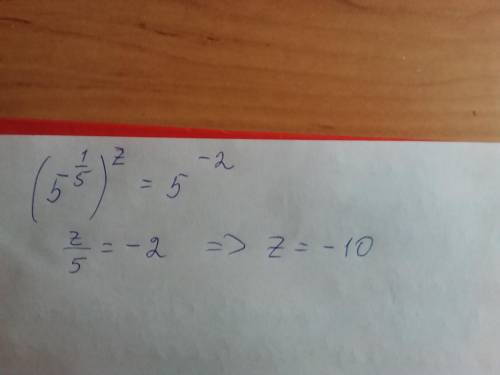 (5^{1/5})^z = 5^{-2}
z/5 = -2 => z = -10